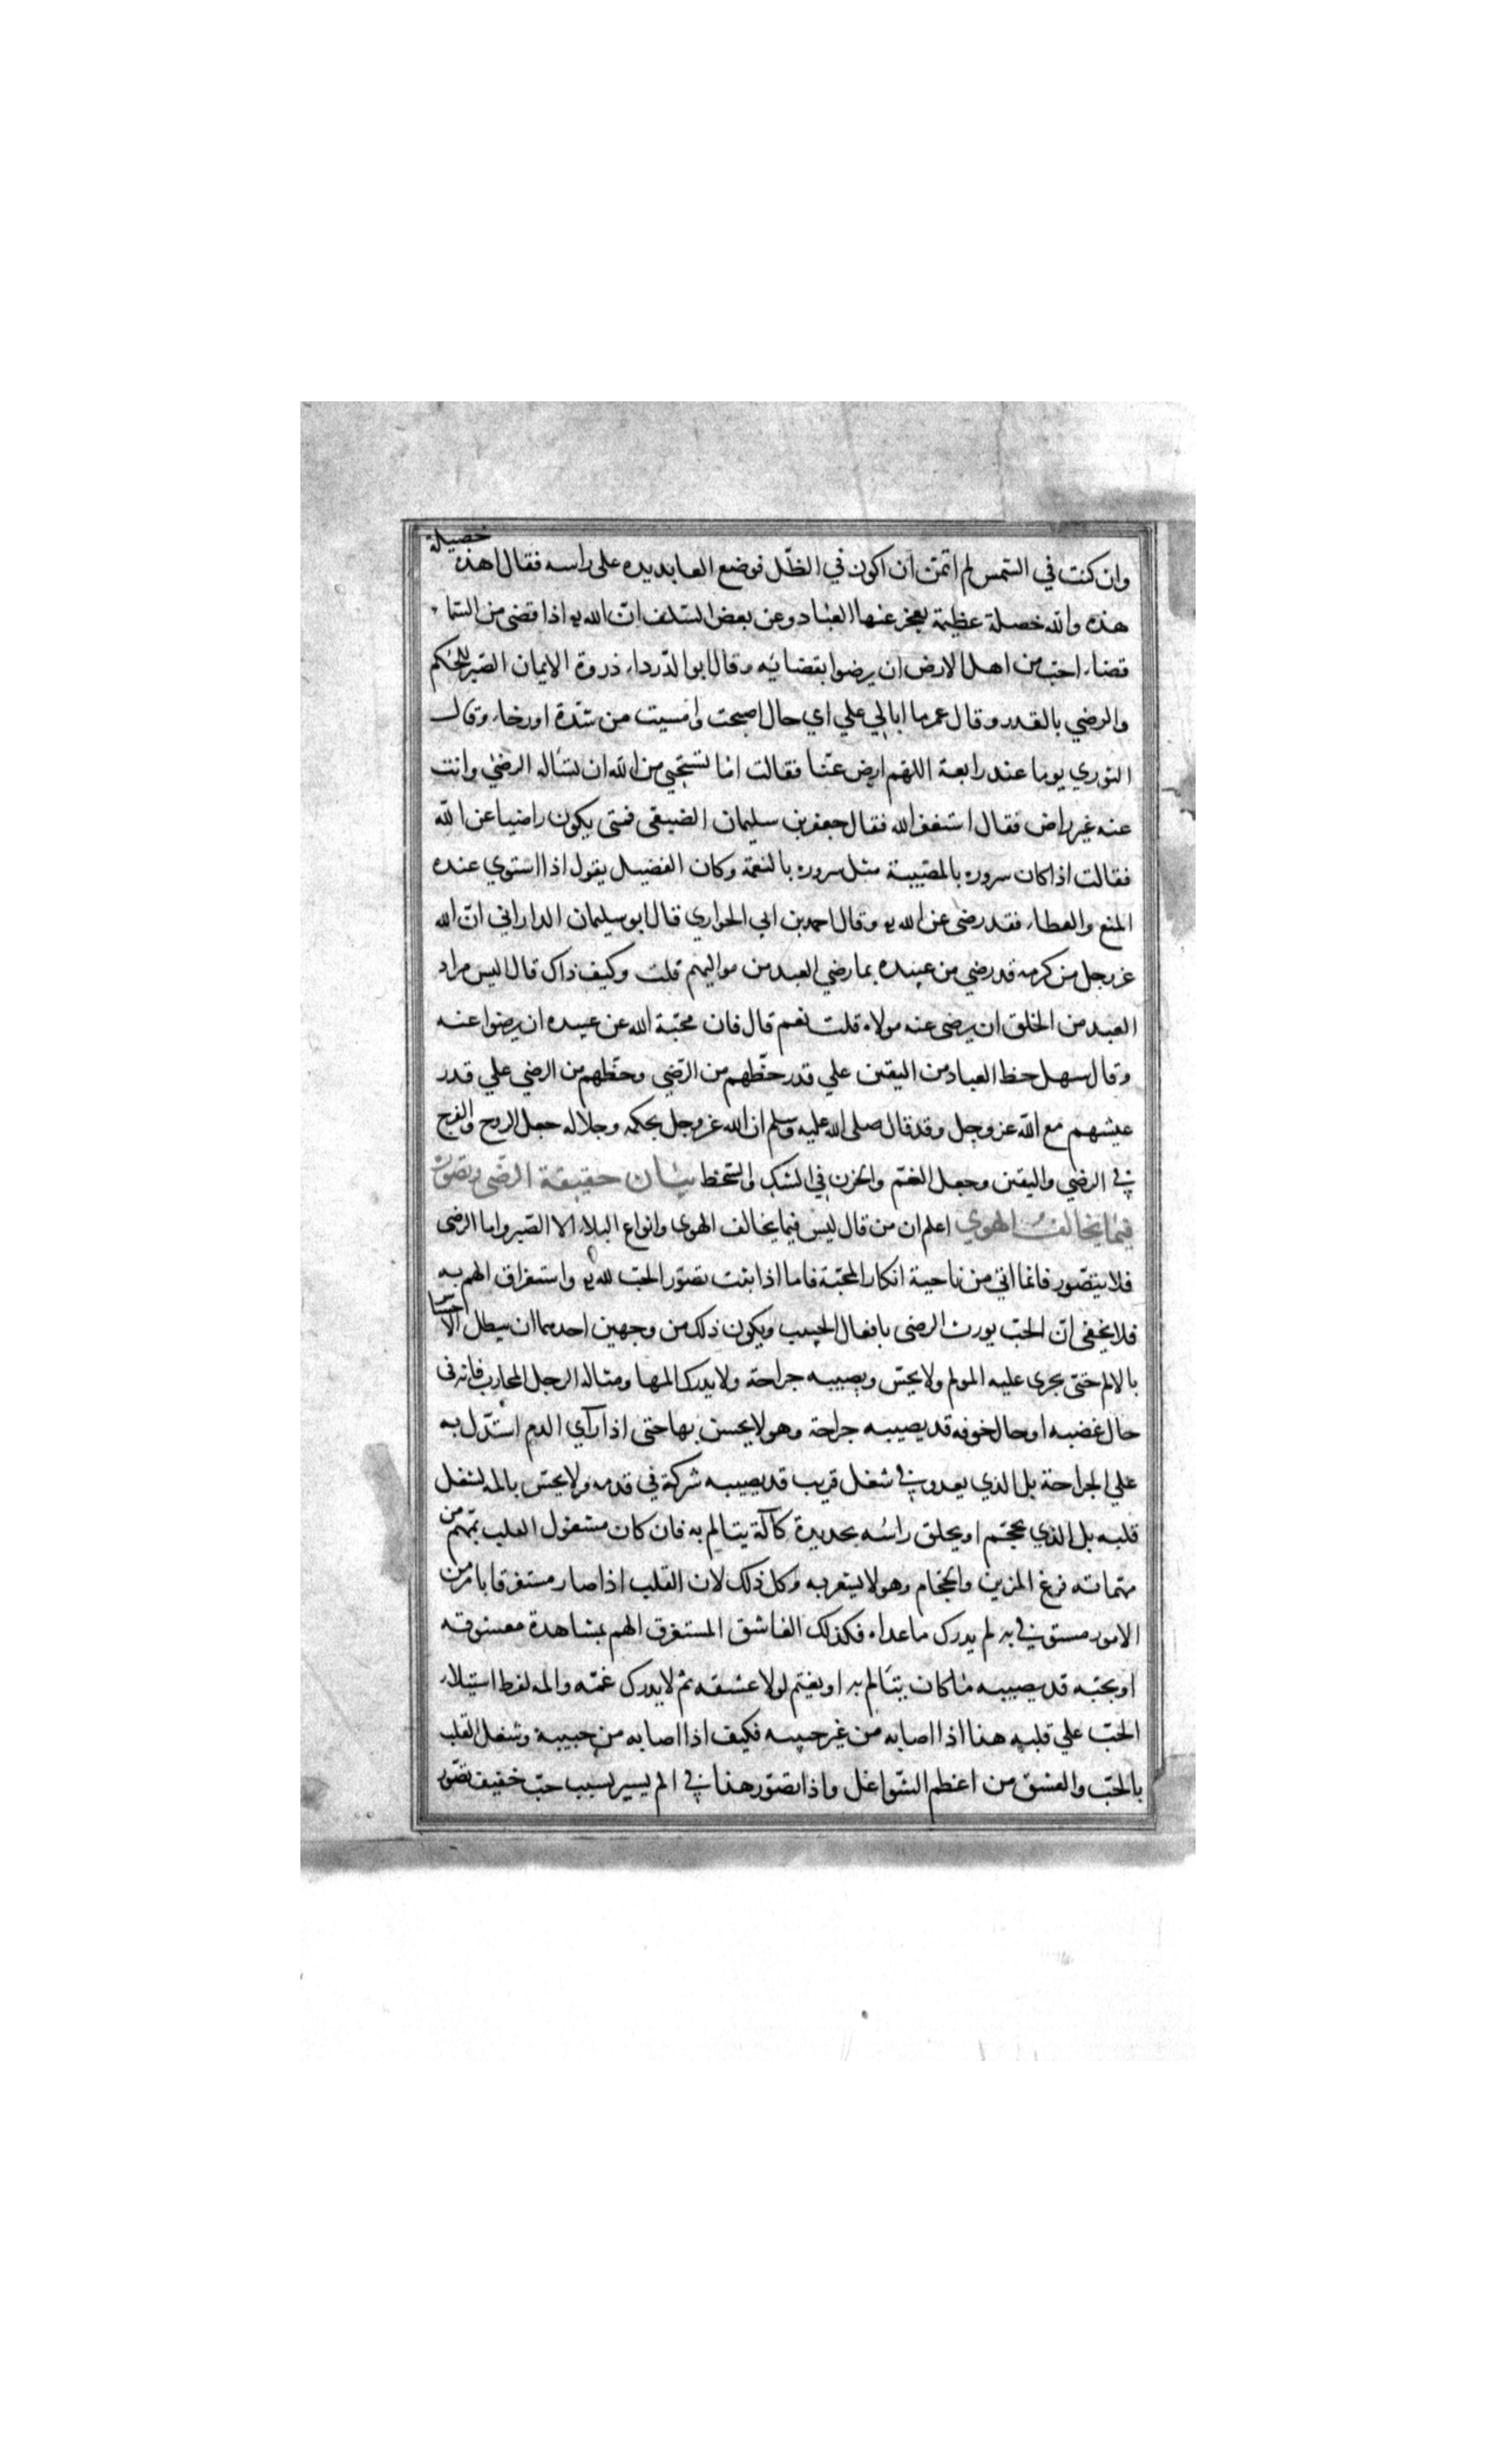 وان كنت في الشمس لم اتمن ان اكون في الظل فوضع العابد يده على راسه فقال اهذه خصيلة
هذه والله خصلة عظيمة يعجز عنها العباد وعن بعض السلف ان الله يه اذا قضى من السماء
قضاء احب من اهل الارض ان يرضوا بقضائه وقال ابو الدرداء ذروة الايمان الصبر للحكم
والرضي بالقدر وقال عمر ما ابالي علي اي حال اصبحت وامسيت من شدة او رخاء وقال
الثوري يوما عند رابعة اللهم ارض عنا فقالت اما تستحيي من الله ان تساله الرضى وانت
عنه غير راض فقال استغفر الله فقال جعفر بن سليمان الضبيعي فمتى يكون راضيا عن الله
فقالت اذا كان سروره بالمصيبة مثل سروره بالنعمة وكان الفضيل يقول اذا استوي عنده
المنع والعطاء فقد رضى عن الله يه وقال احمد بن ابي الحواري قال ابو سليمان الداراني ان الله
عز وجل من كرمه قد رضي من عبيده بما رضي العبد من مواليهم قلت وكيف ذاك قال اليس مراد
العبد من الخلق ان يرضى عنه مولاه قلت نعم قال فان محبة الله عن عبيده ان يرضوا عنه
وقال سهل حظ العباد من اليقين علي قدر حظهم من الرضي وحظهم من الرضي علي قدر
عيشهم مع الله عز وجل وقد قال صلى الله عليه وسلم ان الله عز وجل بحكمه وجلاله جعل الروح والفرح
في الرضي واليقين وجعل الغم والحزن في الشك والسخط بيان حقيقة الرضى وتصوره
فيما يخالف الهوي اعلم ان من قال ليس فيما يخالف الهوى وانواع البلاء الا الصبر واما الرضى
فلا يتصور فانما اتي من ناحية انكار المحبة فاما اذا ثبت تصور الحب لله يه واستغراق الهم به
فلا يخفى ان الحب يورث الرضى بافعال الحبيب ويكون ذلك من وجهين احدهما ان يبطل الاحساس
بالالم حتى يجرى عليه المولم ولا يحس ويصيبه جراحة ولا يدرك المها ومثاله الرجل المحارب فانه في
حال غضبه او حال خوفه قد يصيبه جراحة وهو لا يحس بها حتى اذا رآي الدم استدل به
علي الجراحة بل الذي يعدو في شغل قريب قد يصيبه شركة في قدمه ولا يحس بالمه لشغل
قلبه بل الذي يحجم او يحلق راسه بحديدة كآلة يتالم به فان كان مشغول القلب بمهم من
مهماته فرغ المزين والحجام وهو لا يشعر به وكل ذلك لان القلب اذا صار مستغرقا بامر من
الامور مستوفي به لم يدرك ما عداه فكذلك العاشق المستغرق الهم بمشاهدة معشوقه
او بحبه قد يصيبه ما كان يتالم به او يغتم لولا عشقه ثم لا يدرك غمه والمه لفرط استيلاء
الحب علي قلبه هذا اذا اصابه من غير حبيبه فكيف اذا اصابه من حبيبه وشغل القلب
بالحب والعشق من اعظم الشواغل واذا تصور هذا في الم يسير بسبب حب خفيف تصور